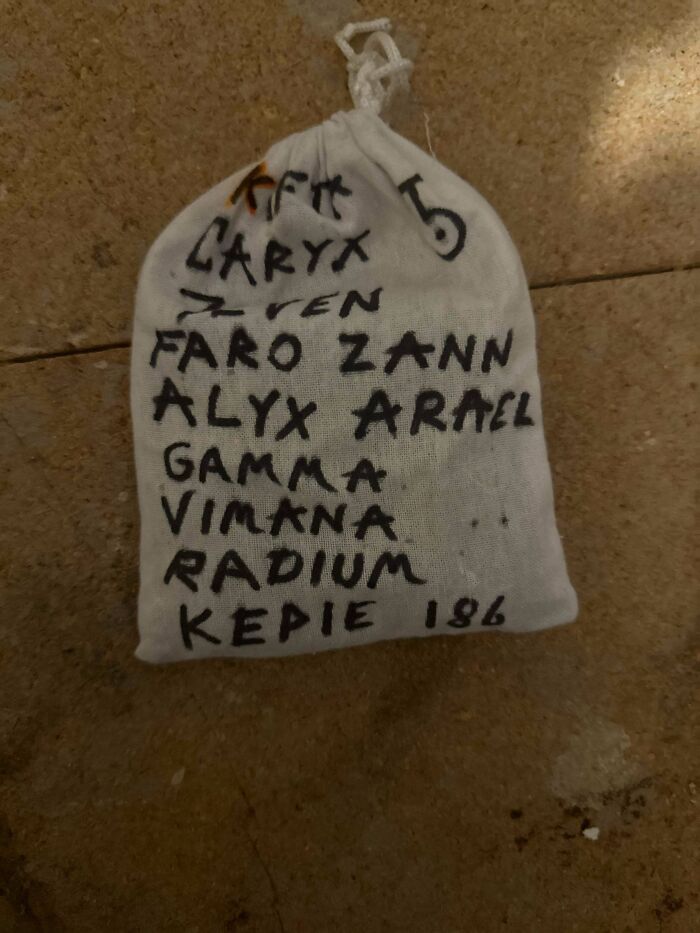 CARYX
FARO ZANN
ALYX ARAEL
GAMMA
VIMANA
RADIUM
KEPIE 186